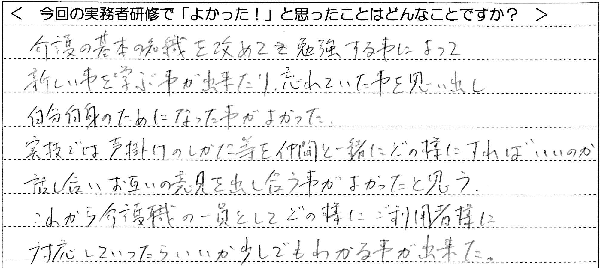 < 今回の実務者研修で「よかった!」と思ったことはどんなことですか? >
介護の基本の知識を改めて勉強する事によって
新しい事を学ぶ事が出来たり、忘れていた事を思い出し
自分自身のためになった事がよかった。
実技では声掛けのしかた等を仲間と一緒にどの様にすればいいのか
話し合いお互いの意見を出し合う事がよかったと思う。
これから介護職の一員としてどの様にご利用者様に
対応していったらいいか少しでもわかる事が出来た。